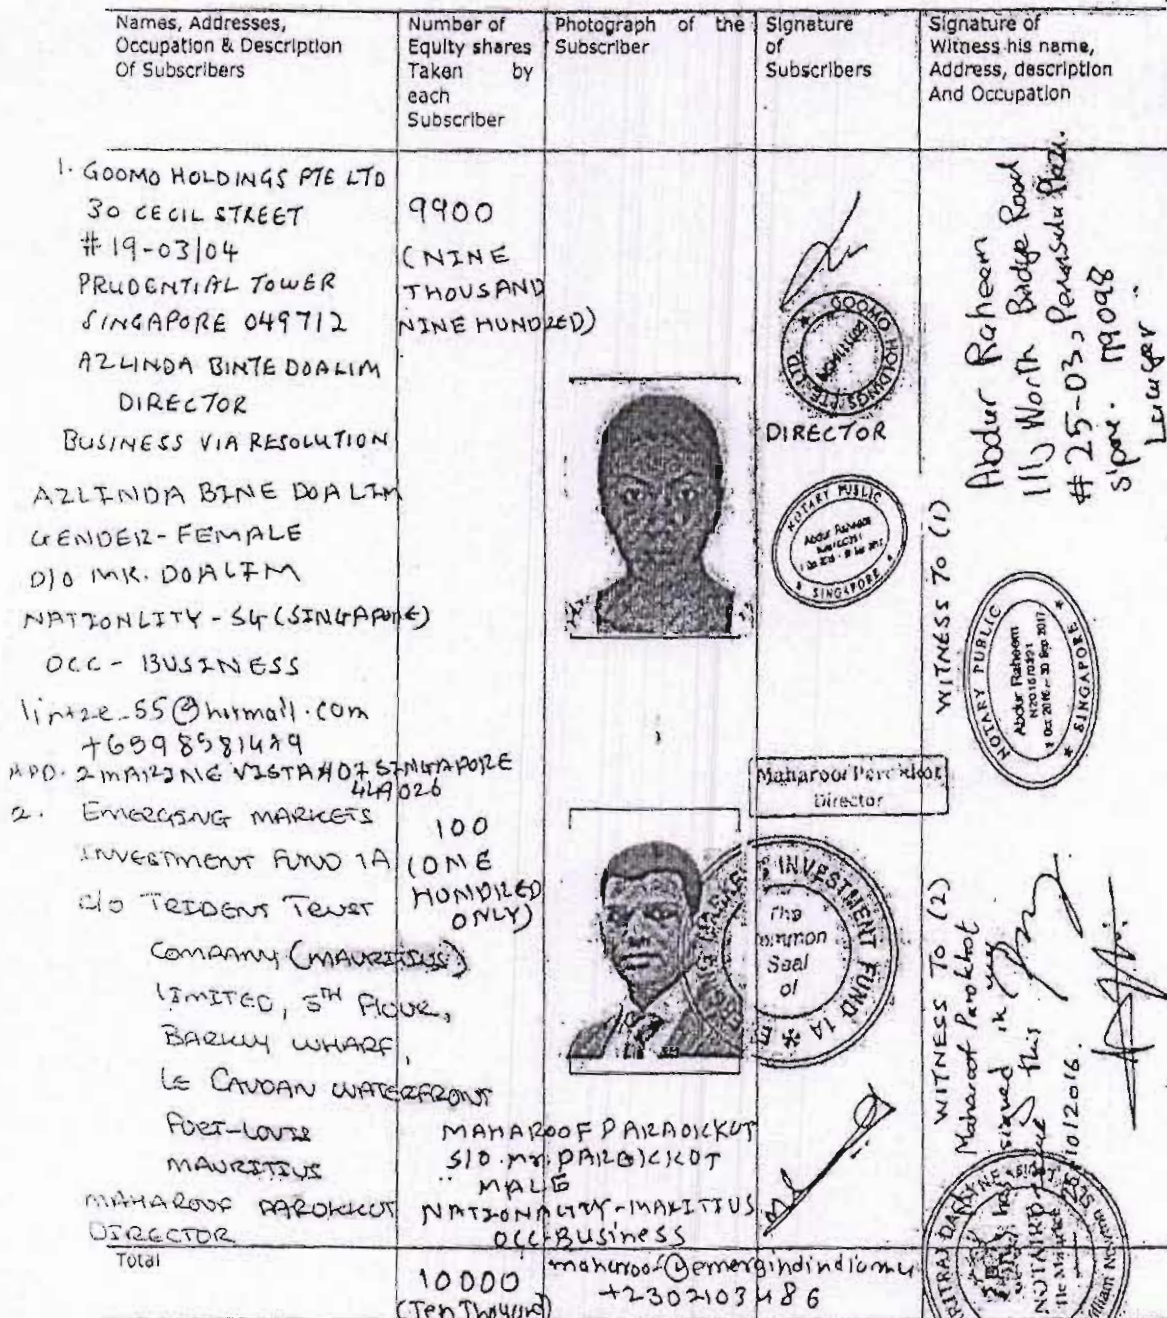 Names, Addresses,
Occupation & Description
Of Subscribers
Number of
Equity shares
Taken by
each
Subscriber
Photograph of the
Subscriber
Signature
of
Subscribers
Signature of
Witness his name,
Address, description
And Occupation
1. GOOMO HOLDINGS PTE LTD
30 CECIL STREET
#19-03/04
PRUDENTIAL TOWER
SINGAPORE 049712
AZLINDA BINTE DOALIM
DIRECTOR
BUSINESS VIA RESOLUTION
AZLINDA BINE DOALIM
GENDER - FEMALE
D/O MR. DOALIM
NATIONLITY - SG (SINGAPORE)
OCC - BUSINESS
ADD. 2 MARINE VISTA SINGAPORE
9900
(NINE
THOUSAND
NINE HUNDRED)
GOOMO HOLDINGS PTE LTD
DIRECTOR
NOTARY PUBLIC
Abdur Raheem
SINGAPORE
WITNESS TO (1)
Abdur Raheem
111, North Bridge Road
#25-03, Peninsula Plaza.
S'pore. 179098
Lawyer
NOTARY PUBLIC
Abdur Raheem
1 Oct 2016 - 30 Sep 2017
SINGAPORE
2. EMERGING MARKETS
INVESTMENT FUND 1A
C/O TRIDENT TRUST
COMPANY (MAURITIUS)
LIMITED, 5TH FLOUR,
BARKLY WHARF,
LE CAUDAN WATERFRONT
PORT-LOUIS
MAURITIUS
MAHAROOF PAROKKUT
DIRECTOR
100
(ONE
HUNDRED
ONLY)
Director
INVESTMENT FUND 1A
The
Common
Seal
of
MAHAROOF
MALE
OCC-BUSINESS
WITNESS TO (2)
Maharoof Parokkot
this
Total
10000
(Ten Thousand)